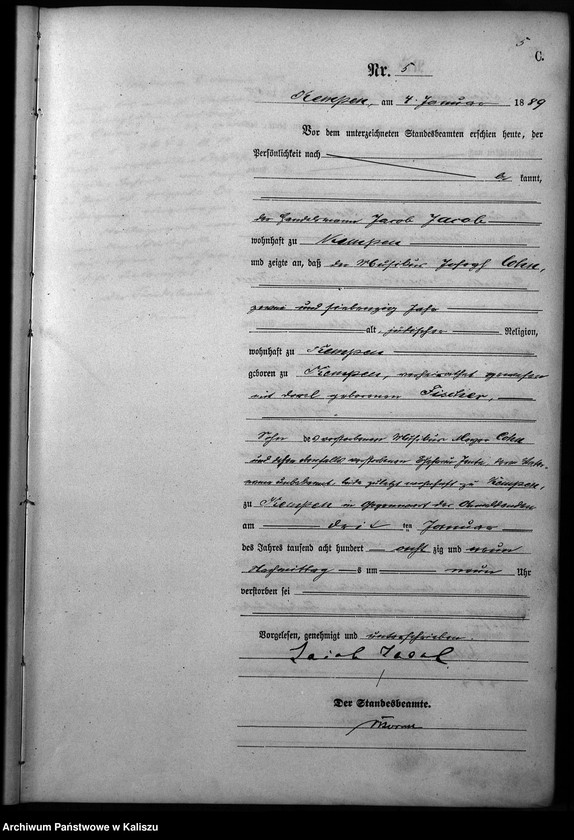 5
C.
Nr. 5
Kempen, am 4. Januar 1889
Vor dem unterzeichneten Standesbeamten erschien heute, der
Persönlichkeit nach
be kannt,
der Handelsmann Jacob Jacob
wohnhaft zu Kempen
und zeigte an, daß der Musikus Joseph Cohn,
zwei und siebenzig Jahr
alt, jüdischer Religion,
wohnhaft zu Kempen
geboren zu Kempen, verheirathet gewesen
mit Dorel geborenen Fischer,
Sohn des verstorbenen Musikus Meyer Cohn
und dessen ebenfalls verstorbenen Ehefrau
unbekannt, beide zuletzt wohnhaft zu Kempen,
zu Kempen in Gegenwart des Anmeldenden
am drit ten Januar
des Jahres tausend acht hundert acht zig und neun
Nachmittag s um neun Uhr
verstorben sei
Vorgelesen, genehmigt und unterschrieben.
Jacob Jacob
Der Standesbeamte.
Archiwum Państwowe w Kaliszu